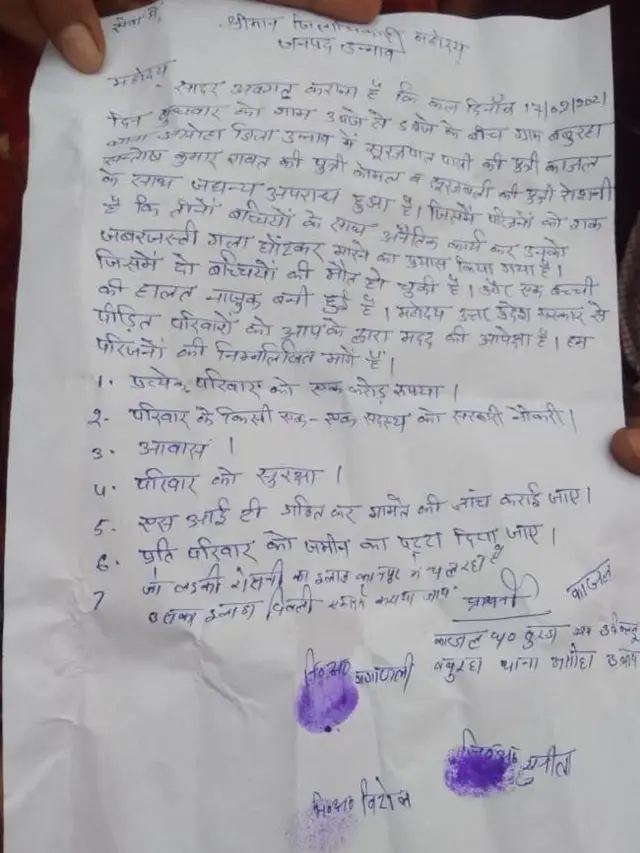 सेवा में,
श्रीमान जिलाधिकारी महोदय
जनपद उन्नाव
महोदय
सादर अवगत कराना है कि कल दिनाँक 17/02/2021
दिन बुधवार को शाम 3 बजे से 5 बजे के बीच ग्राम बबुरहा
थाना असोहा जिला उन्नाव में सूरजपाल पासी की पुत्री काजल
सन्तोष कुमार रावत की पुत्री कोमल व सूरजबली की पुत्री रोशनी
के साथ जघन्य अपराध हुआ है। जिसमें परिजनों को शक
है कि तीनों बच्चियों के साथ अनैतिक कार्य कर उनको
जबरजस्ती गला घोंटकर मारने का प्रयास किया गया है।
जिसमें दो बच्चियों की मौत हो चुकी है। और एक बच्ची
की हालत नाजुक बनी हुई है। महोदय उत्तर प्रदेश सरकार से
पीड़ित परिवारों को आपके द्वारा मदद की अपेक्षा है। हम
परिजनों की निम्नलिखित मांगें हैं।
1. प्रत्येक परिवार को एक करोड़ रूपया।
2- परिवार के किसी एक-एक सदस्य को सरकारी नौकरी।
3. आवास।
4. परिवार को सुरक्षा।
5. एस आई टी गठित कर मामले की जांच कराई जाए।
6. प्रति परिवार को जमीन का पट्टा दिया जाए।
7 जो लडकी रोशनी का इलाज कानपुर में चल रहा है
उसका इलाज दिल्ली कराया जाय
प्रार्थी काजल
काजल
बबुरहा थाना असोहा उन्नाव
नि०अं०
नि०अं० सुनीता
नि०अं०